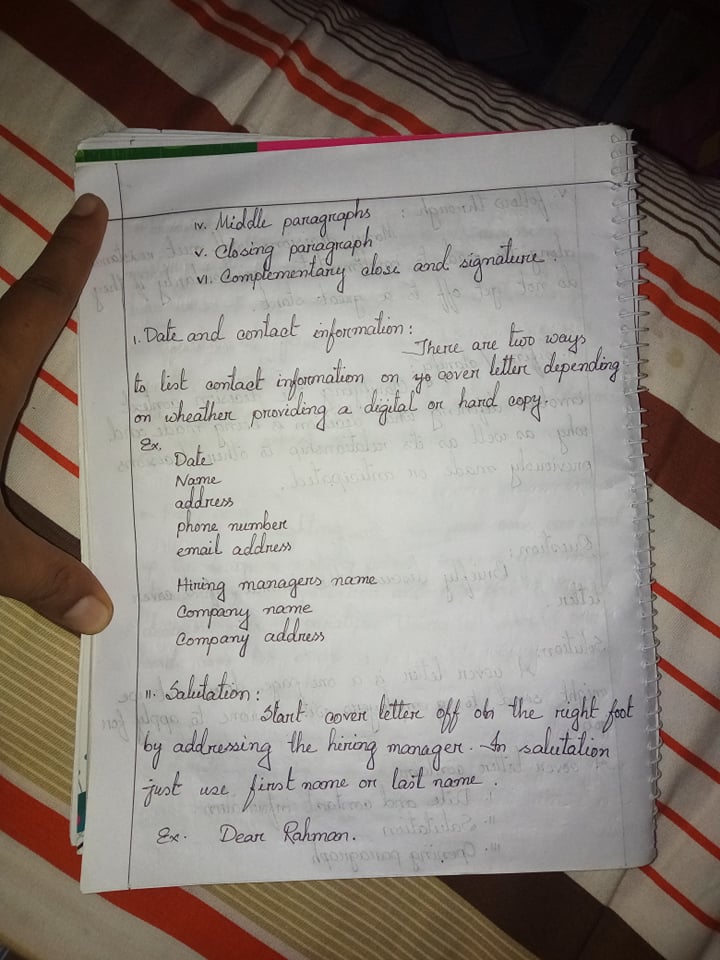 iv. Middle paragraphs
v. Closing paragraph
vi. Complementary close and signature.
i. Date and contact information:
There are two ways
to list contact information on yo cover letter depending
on wheather providing a digital or hard copy.
Ex.
Date
Name
address
phone number
email address
Hiring managers name
Company name
Company address
ii. Salutation:
Start cover letter off on the right foot
by addressing the hiring manager. In salutation
just use first name or last name.
Ex. Dear Rahman.